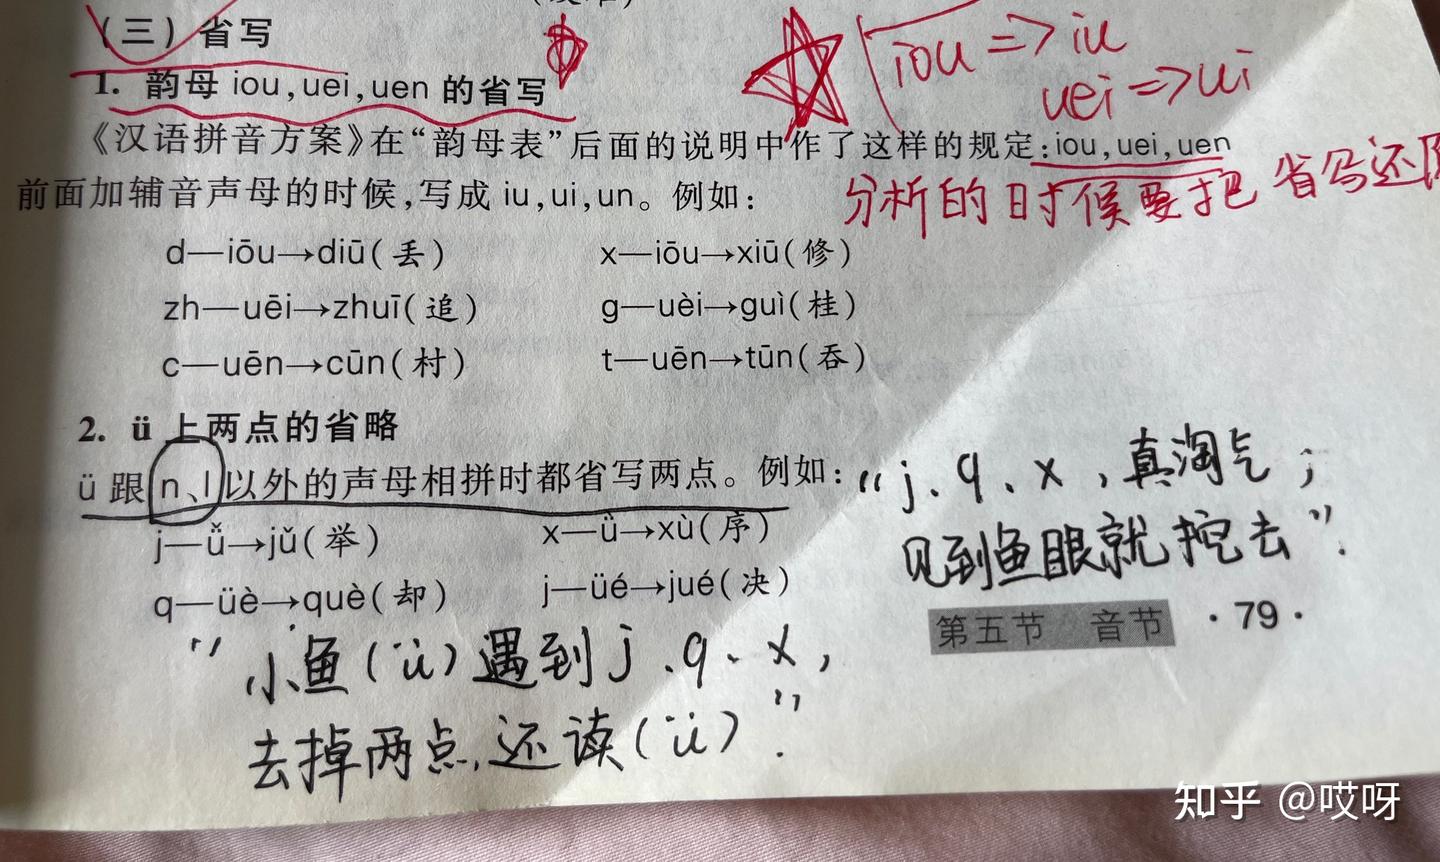 （三）省写
iou => iu
1. 韵母 iou,uei,uen 的省写
uei => ui
《汉语拼音方案》在“韵母表”后面的说明中作了这样的规定:iou,uei,uen
前面加辅音声母的时候,写成 iu,ui,un。例如:
分析的时候要把省写还原
d—iōu→diū(丢) x—iōu→xiū(修)
zh—uēi→zhuī(追) g—uèi→guì(桂)
c—uēn→cūn(村) t—uēn→tūn(吞)
2. ü 上两点的省略
ü 跟 n、l 以外的声母相拼时都省写两点。例如:
“j、q、x,真淘气;
见到鱼眼就挖去”.
j—ǚ→jǔ(举) x—ǜ→xù(序)
q—üè→què(却) j—üé→jué(决)
第五节 音节 ·79·
“小鱼(ü)遇到j、q、x,
去掉两点,还读(ü)”.
知乎 @哎呀